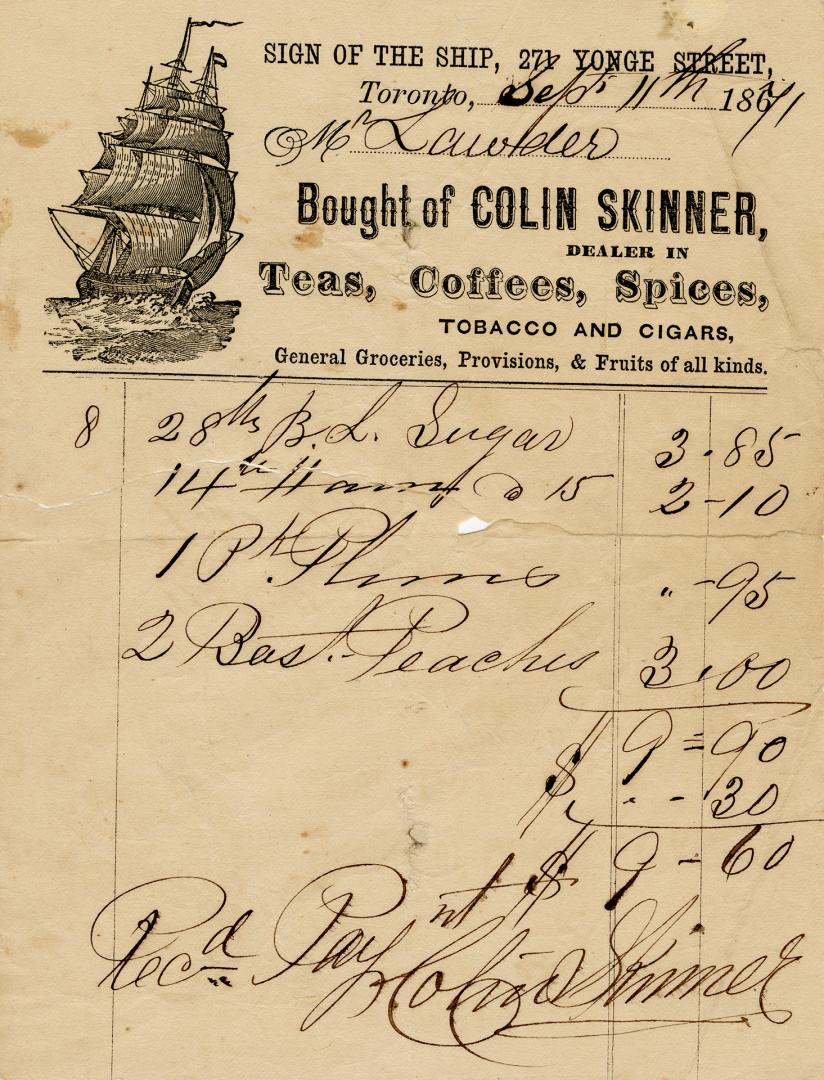 SIGN OF THE SHIP, 271 YONGE STREET,
Toronto, Sept. 11th 1871
Mr Lawder
Bought of COLIN SKINNER,
DEALER IN
Teas, Coffees, Spices,
TOBACCO AND CIGARS,
General Groceries, Provisions, & Fruits of all kinds.
8 28 lbs B. L. Sugar 3.85
14 " Ham @ 15 2-10
1 Pk. Plums " -95
2 Bas. Peaches 3.00
$ 9=90
" - 30
$ 9-60
Rec'd Paynt
Colin Skinner